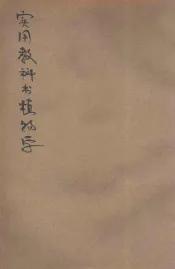 实用教科书植物学